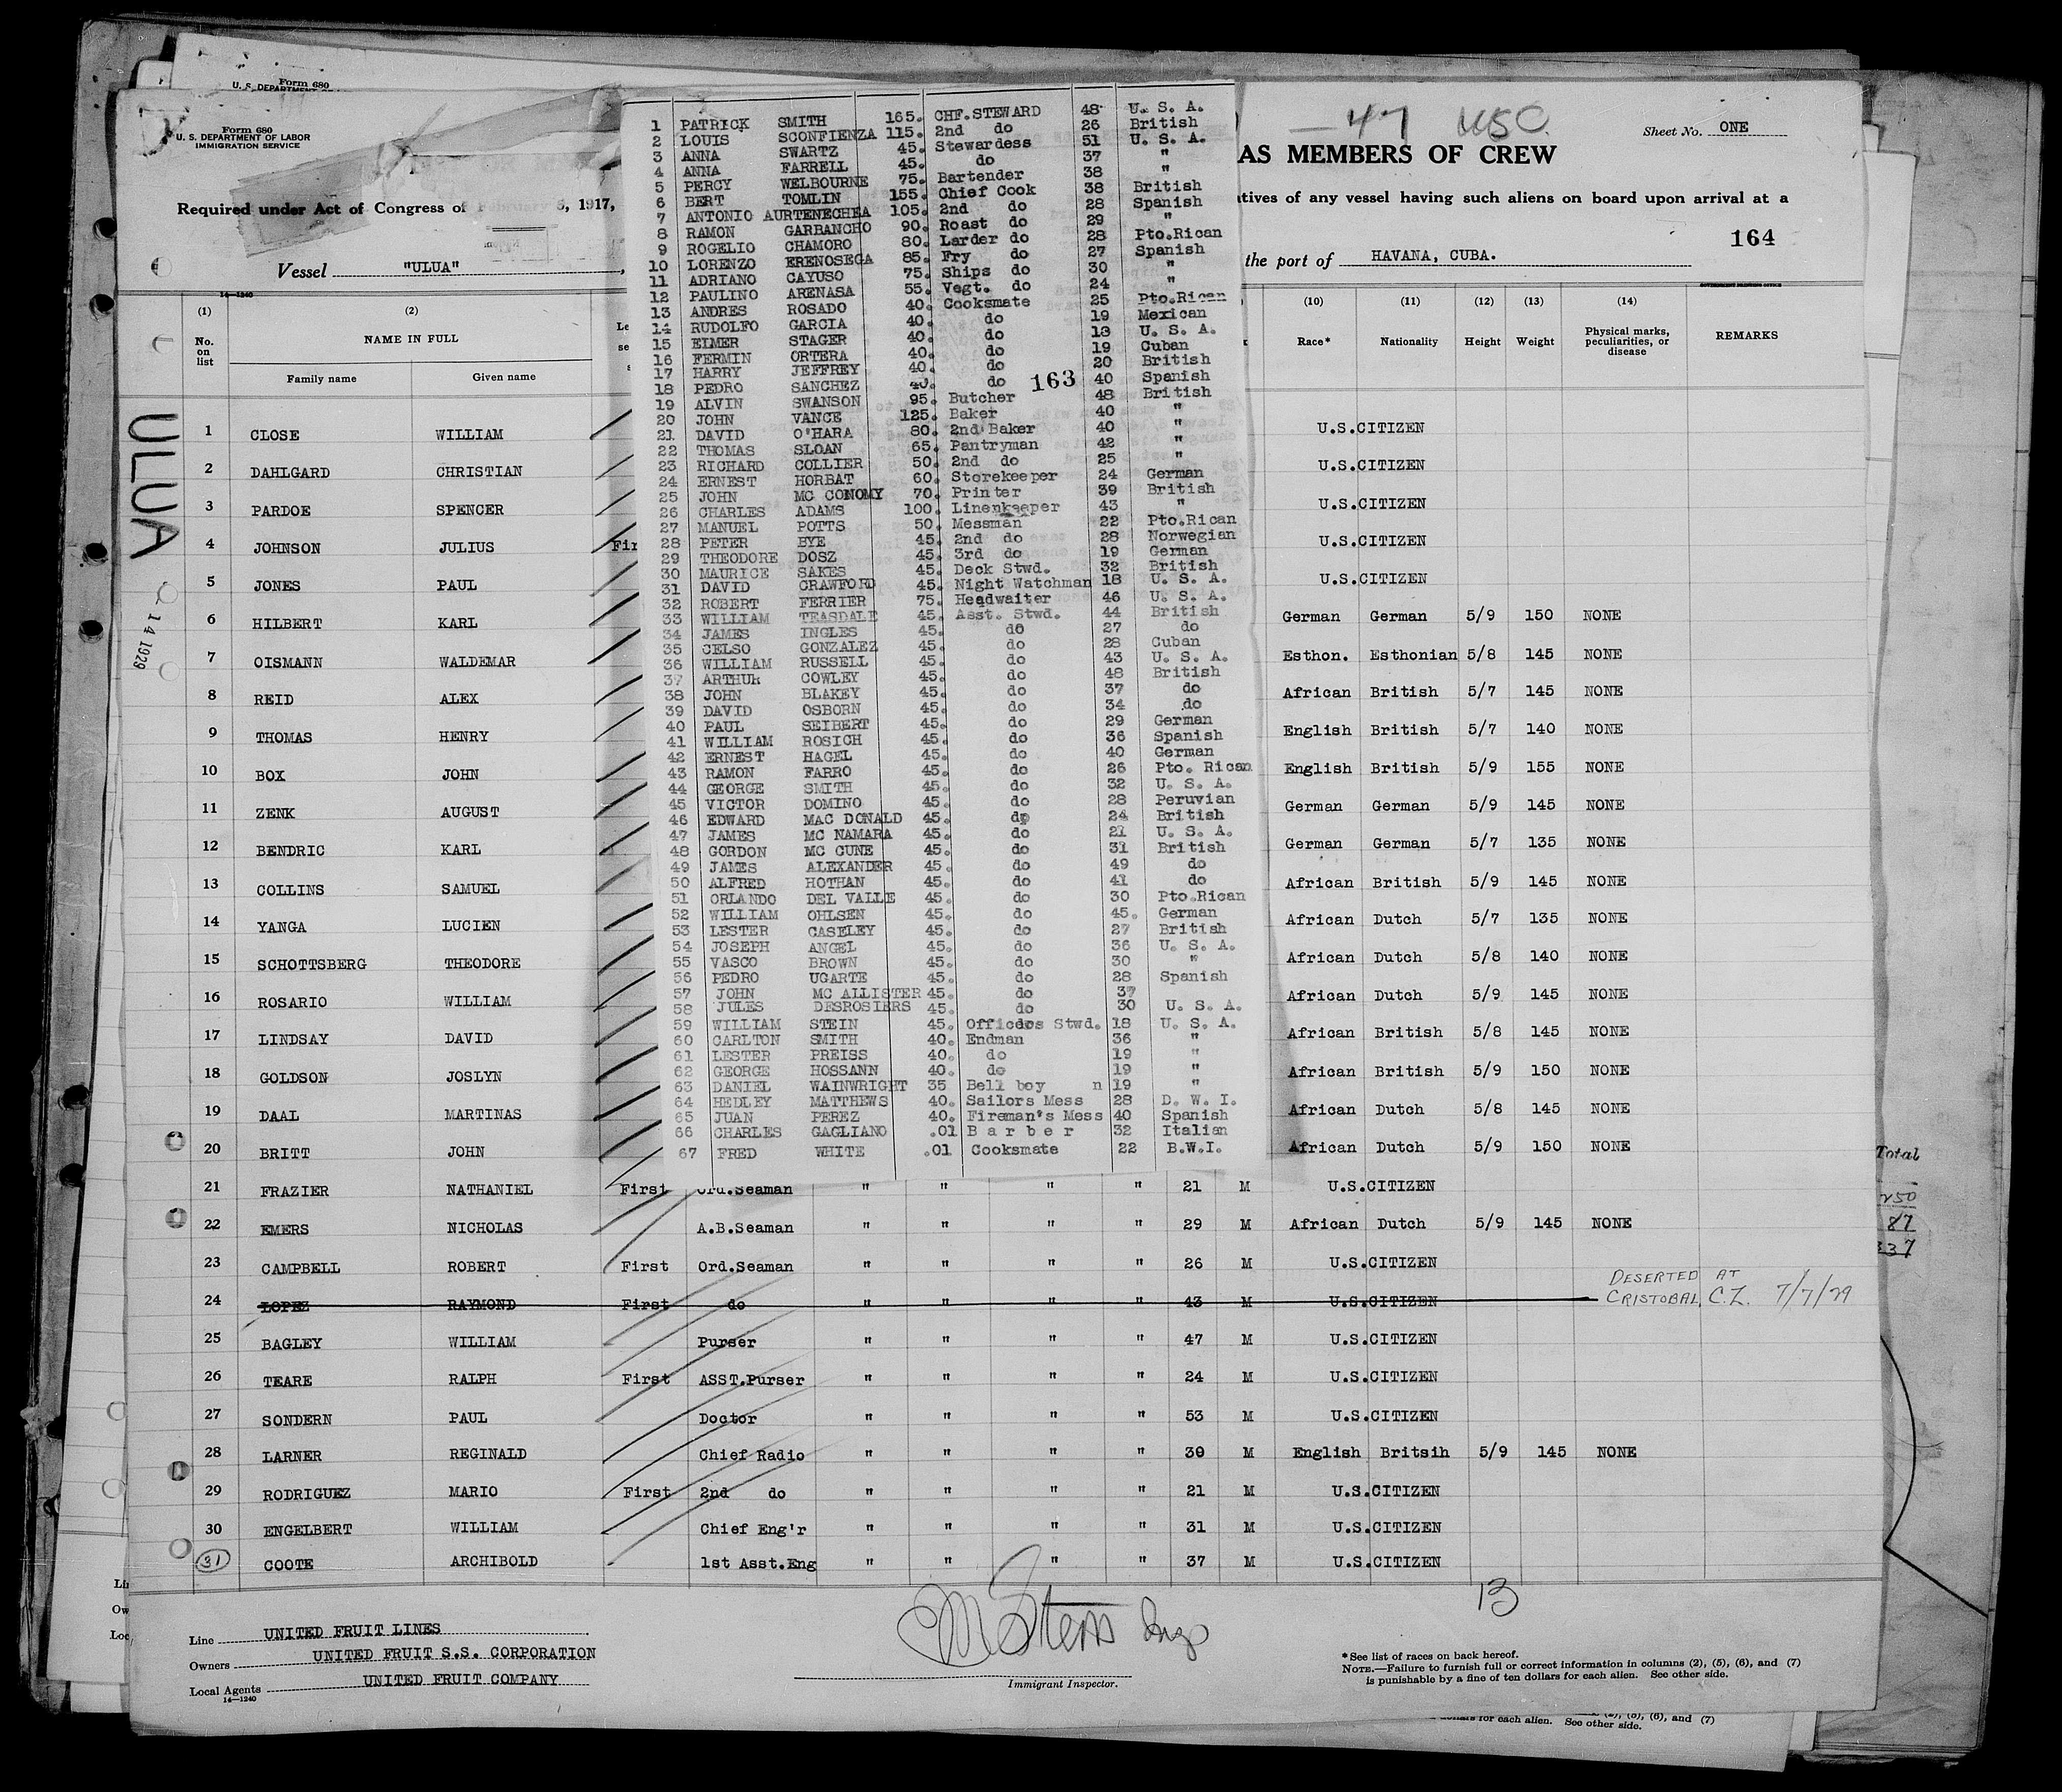 Form 680
U. S. DEPARTMENT
Form 680
U. S. DEPARTMENT OF LABOR
IMMIGRATION SERVICE
— 47 USC.
Sheet No. ONE
AS MEMBERS OF CREW
Required under Act of Congress of February 5, 1917,
tives of any vessel having such aliens on board upon arrival at a
164
Vessel "ULUA"
the port of HAVANA, CUBA.
1 PATRICK SMITH 165. CHF.STEWARD 48 U. S. A.
2 LOUIS SCONFIENZA 115. 2nd do 26 British
3 ANNA SWARTZ 45. Stewardess 51 U. S. A.
4 ANNA FARRELL 45. do 37 "
5 PERCY WELBOURNE 75. Bartender 38 "
6 BERT TOMLIN 155. Chief Cook 38 British
7 ANTONIO AURTENECHEA 105. 2nd do 28 Spanish
8 RAMON GARBANCHO 90. Roast do 29 "
9 ROGELIO CHAMORO 80. Larder do 28 Pto.Rican
10 LORENZO ERENOSEGA 85. Fry do 27 Spanish
11 ADRIANO CAYUSO 75. Ships do 30 "
12 PAULINO ARENASA 55. Vegt. do 24 "
13 ANDRES ROSADO 40. Cooksmate 25 Pto.Rican
14 RUDOLFO GARCIA 40. do 19 Mexican
15 ELMER STAGER 40. do 18 U. S. A.
16 FERMIN ORTERA 40. do 19 Cuban
17 HARRY JEFFREY 40. do 20 British
18 PEDRO SANCHEZ 40. do 163 40 Spanish
19 ALVIN SWANSON 95. Butcher 48 British
20 JOHN VANCE 125. Baker 40 "
21 DAVID O'HARA 80. 2nd Baker 40 "
22 THOMAS SLOAN 65. Pantryman 42 "
23 RICHARD COLLIER 50. 2nd do 25 "
24 ERNEST HORBAT 60. Storekeeper 24 German
25 JOHN MC CONOMY 70. Printer 39 British
26 CHARLES ADAMS 100. Linenkeeper 43 "
27 MANUEL POTTS 50. Messman 22 Pto.Rican
28 PETER BYE 45. 2nd do 28 Norwegian
29 THEODORE DOSZ 45. 3rd do 19 German
30 MAURICE SAKES 45. Deck Stwd. 32 British
31 DAVID CRAWFORD 45. Night Watchman 18 U. S. A.
32 ROBERT FERRIER 75. Headwaiter 46 U. S. A.
33 WILLIAM TEASDALE 45. Asst. Stwd. 44 British
34 JAMES INGLES 45. do 27 do
35 CELSO GONZALEZ 45. do 28 Cuban
36 WILLIAM RUSSELL 45. do 43 U. S. A.
37 ARTHUR COWLEY 45. do 48 British
38 JOHN BLAKEY 45. do 37 do
39 DAVID OSBORN 45. do 34 do
40 PAUL SEIBERT 45. do 29 German
41 WILLIAM ROSICH 45. do 36 Spanish
42 ERNEST HAGEL 45. do 40 German
43 RAMON FARRO 45. do 26 Pto. Rican
44 GEORGE SMITH 45. do 32 U. S. A.
45 VICTOR DOMINO 45. do 28 Peruvian
46 EDWARD MAC DONALD 45. do 24 British
47 JAMES MC NAMARA 45. do 21 U. S. A.
48 GORDON MC CUNE 45. do 31 British
49 JAMES ALEXANDER 45. do 49 do
50 ALFRED HOTHAN 45. do 41 do
51 ORLANDO DEL VALLE 45. do 30 Pto.Rican
52 WILLIAM OHLSEN 45. do 45. German
53 LESTER CASELEY 45. do 27 British
54 JOSEPH ANGEL 45. do 36 U. S. A.
55 VASCO BROWN 45. do 30 "
56 PEDRO UGARTE 45. do 28 Spanish
57 JOHN MC ALLISTER 45. do 37
58 JULES DESROSIERS 45. do 30 U. S. A.
59 WILLIAM STEIN 45. Officers Stwd. 18 U. S. A.
60 CARLTON SMITH 40. Endman 36 "
61 LESTER PREISS 40. do 19 "
62 GEORGE HOSSANN 40. do 19 "
63 DANIEL WAINWRIGHT 35 Bell boy n 19 "
64 HEDLEY MATTHEWS 40. Sailors Mess 28 D. W. I.
65 JUAN PEREZ 40. Fireman's Mess 40 Spanish
66 CHARLES GAGLIANO .01 B a r b e r 32 Italian
67 FRED WHITE .01 Cooksmate 22 B.W.I.
14—1240
(1) (2) (10) (11) (12) (13) (14)
No. on list NAME IN FULL Race* Nationality Height Weight Physical marks, peculiarities, or disease REMARKS
Family name Given name
ULUA
14 1929
1 CLOSE WILLIAM U.S.CITIZEN
2 DAHLGARD CHRISTIAN U.S.CITIZEN
3 PARDOE SPENCER U.S.CITIZEN
4 JOHNSON JULIUS Fir U.S.CITIZEN
5 JONES PAUL U.S.CITIZEN
6 HILBERT KARL German German 5/9 150 NONE
7 OISMANN WALDEMAR Esthon. Esthonian 5/8 145 NONE
8 REID ALEX African British 5/7 145 NONE
9 THOMAS HENRY English British 5/7 140 NONE
10 BOX JOHN English British 5/9 155 NONE
11 ZENK AUGUST German German 5/9 145 NONE
12 BENDRIC KARL German German 5/7 135 NONE
13 COLLINS SAMUEL African British 5/9 145 NONE
14 YANGA LUCIEN African Dutch 5/7 135 NONE
15 SCHOTTSBERG THEODORE African Dutch 5/8 140 NONE
16 ROSARIO WILLIAM African Dutch 5/9 145 NONE
17 LINDSAY DAVID African British 5/8 145 NONE
18 GOLDSON JOSLYN African British 5/9 150 NONE
19 DAAL MARTINAS African Dutch 5/8 145 NONE
20 BRITT JOHN African Dutch 5/9 150 NONE
21 FRAZIER NATHANIEL First Ord.Seaman " " " " 21 M U.S.CITIZEN
22 EMERS NICHOLAS A.B.Seaman " " " " 29 M African Dutch 5/9 145 NONE
23 CAMPBELL ROBERT First Ord.Seaman " " " " 26 M U.S.CITIZEN
24 LOPEZ RAYMOND First do " " " " 43 M U.S.CITIZEN DESERTED AT CRISTOBAL, C.Z. 7/7/29
25 BAGLEY WILLIAM Purser " " " " 47 M U.S.CITIZEN
26 TEARE RALPH First ASST.Purser " " " " 24 M U.S.CITIZEN
27 SONDERN PAUL Doctor " " " " 53 M U.S.CITIZEN
28 LARNER REGINALD Chief Radio " " " " 30 M English Britsih 5/9 145 NONE
29 RODRIGUEZ MARIO First 2nd do " " " " 21 M U.S.CITIZEN
30 ENGELBERT WILLIAM Chief Eng'r " " " " 31 M U.S.CITIZEN
31 COOTE ARCHIBOLD 1st Asst.Eng " " " " 37 M U.S.CITIZEN
Total
250
87
337
13
Line UNITED FRUIT LINES
Owners UNITED FRUIT S.S. CORPORATION
Local Agents UNITED FRUIT COMPANY
14—1240
Immigrant Inspector.
*See list of races on back hereof.
NOTE.—Failure to furnish full or correct information in columns (2), (5), (6), and (7)
is punishable by a fine of ten dollars for each alien. See other side.
(2), (5), (6), and (7)
dollars for each alien. See other side.